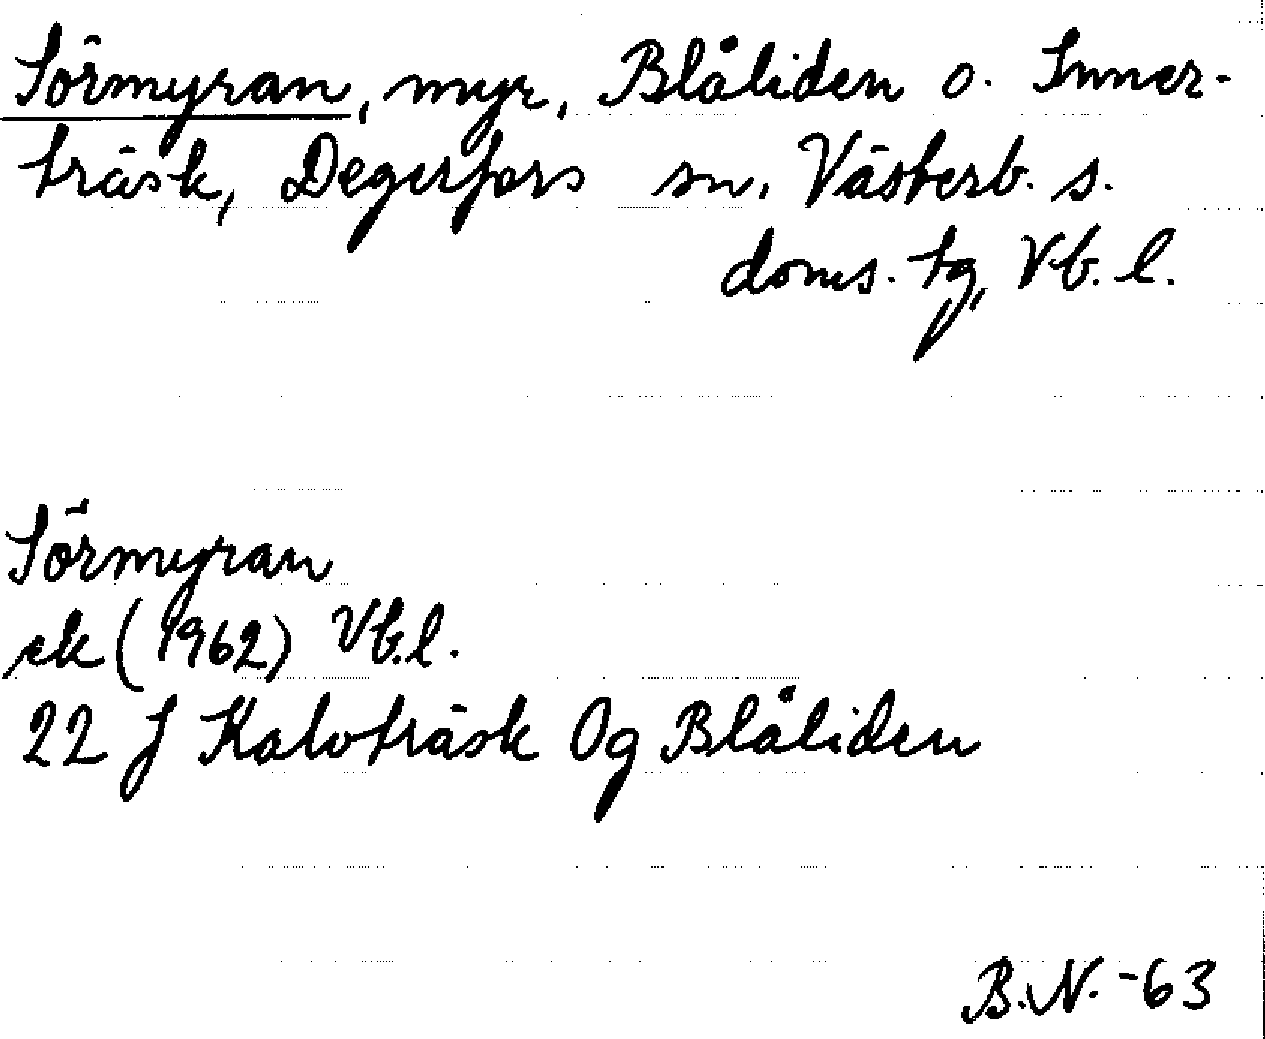 Sörmyran, myr, Blåliden o. Inner-
träsk, Degerfors sn, Västerb. s.
doms. tg, Vb. l.
Sörmyran
ek (1962) Vb.l.
22 J Kalvträsk Og Blåliden
B.N. -63